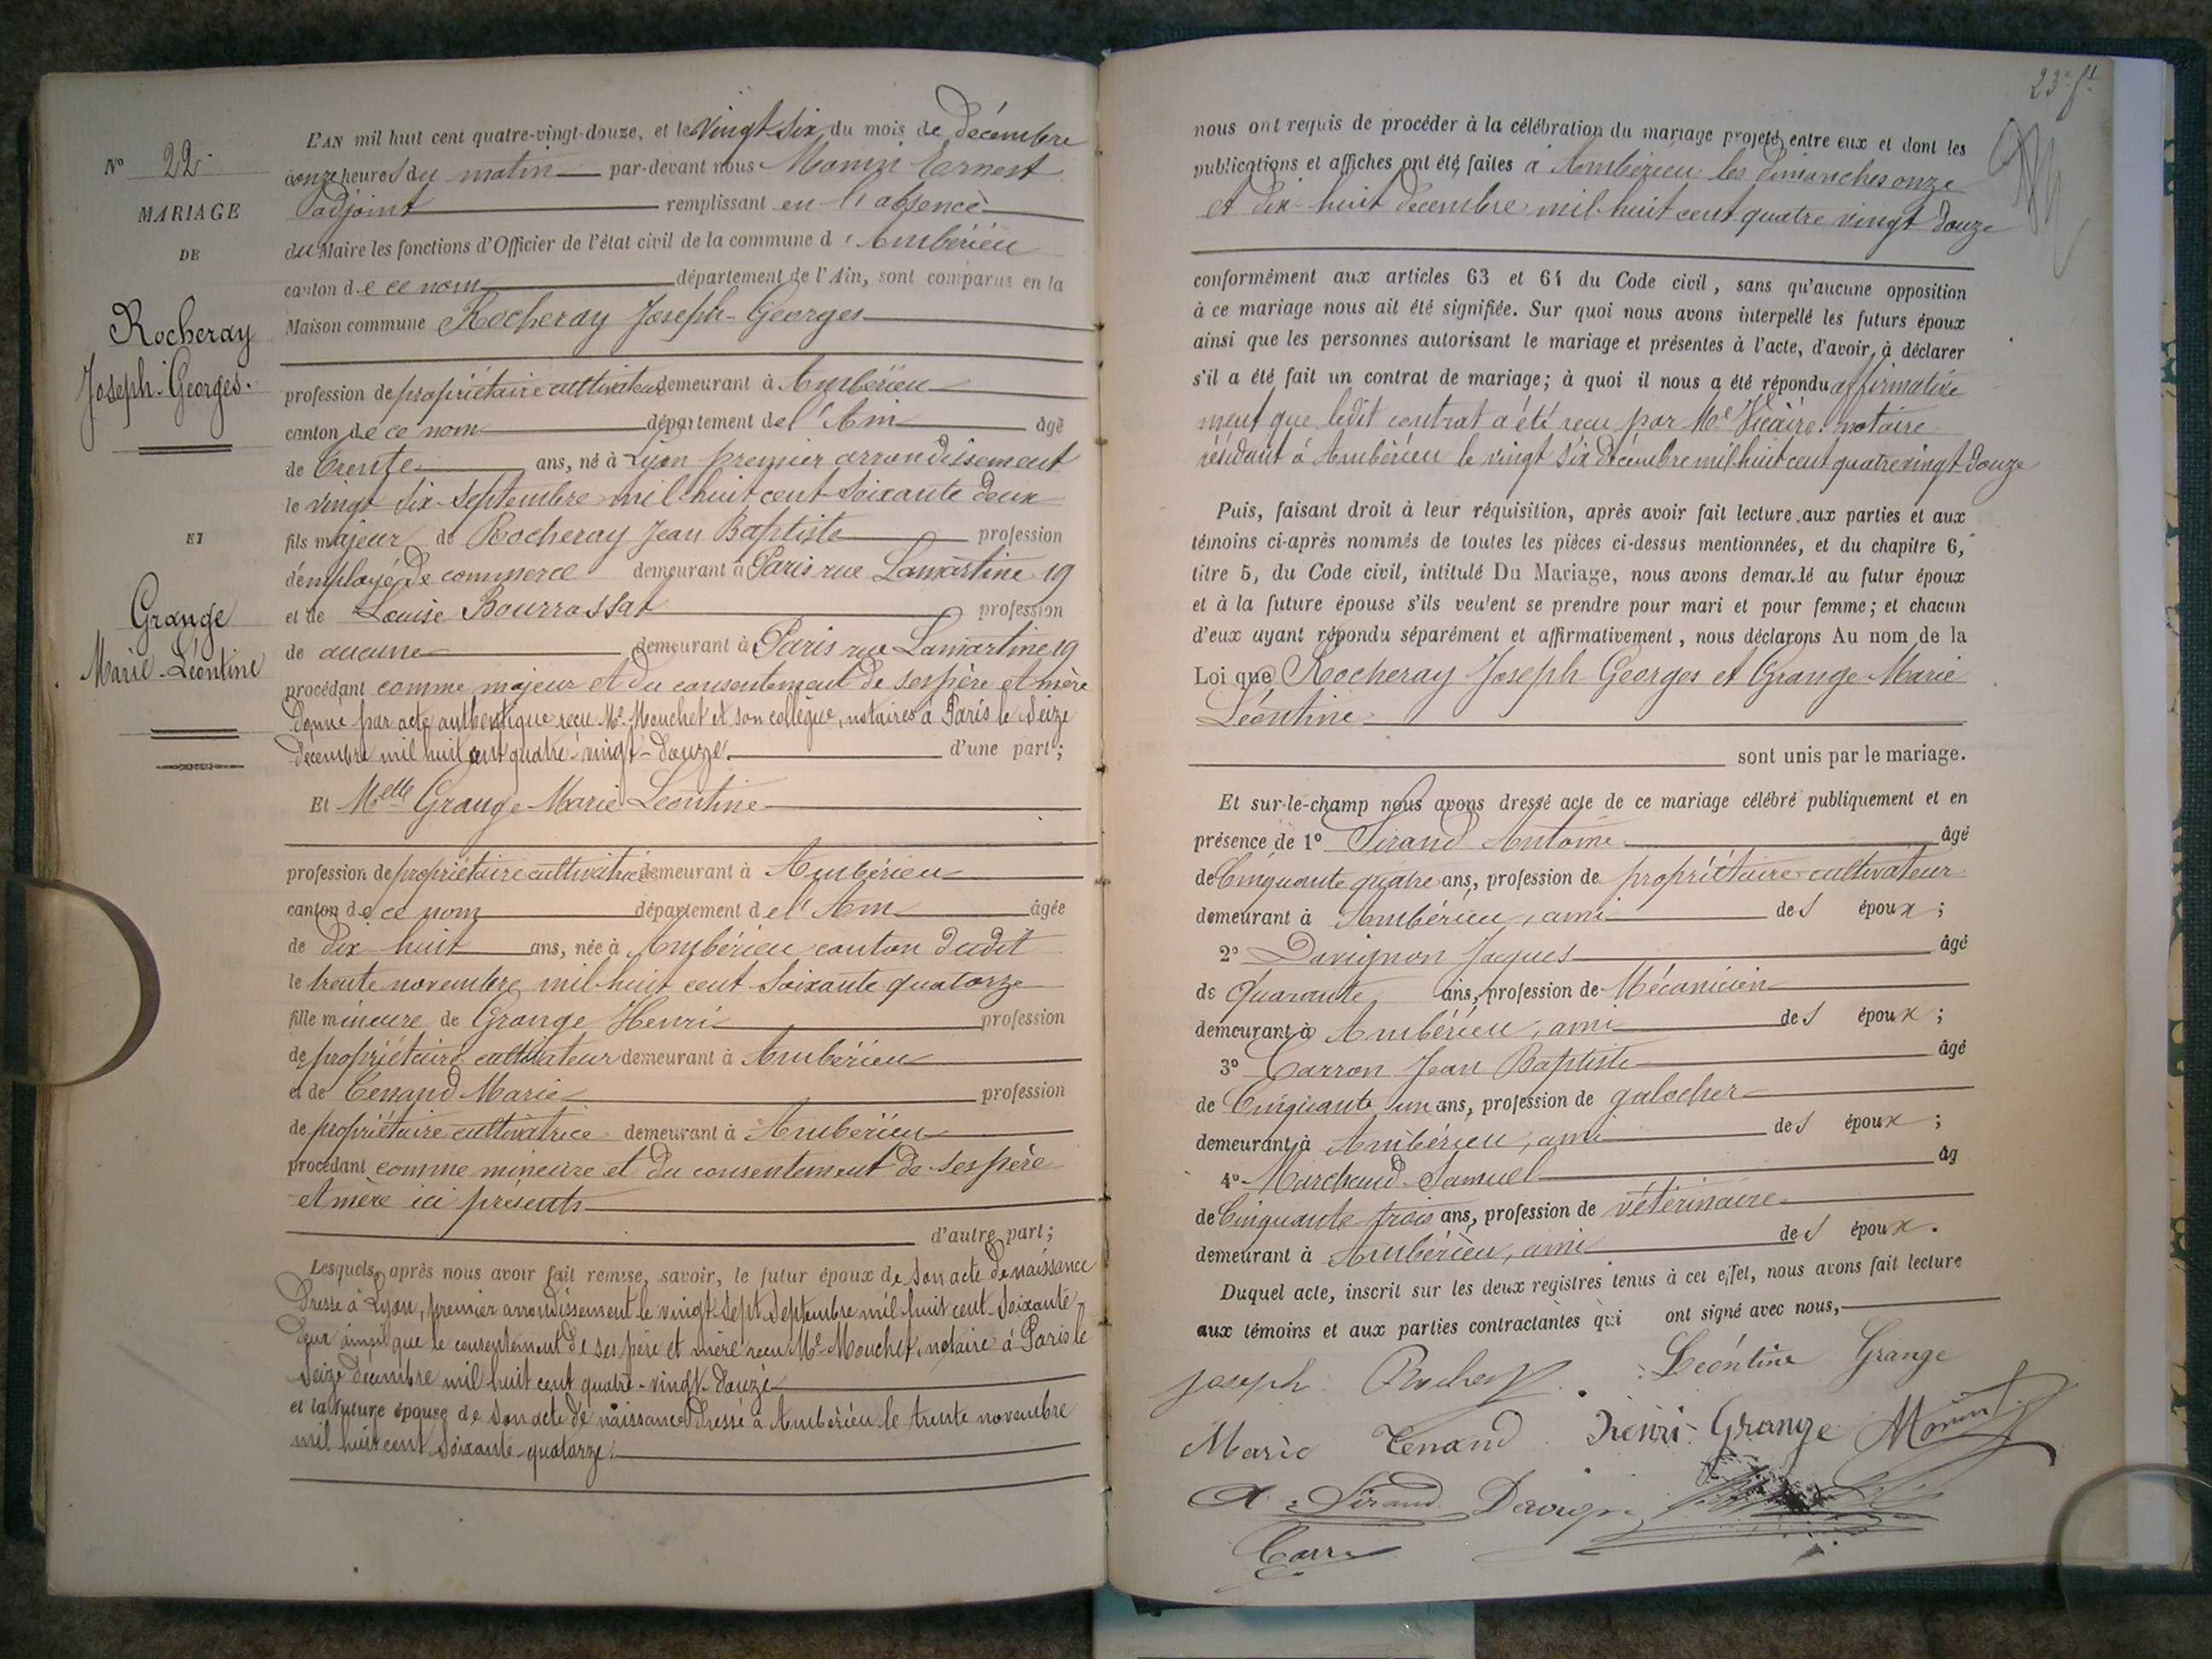 N° 22.
MARIAGE
DE
Rocheray
Joseph-Georges.
ET
Grange
Marie-Léontine
L'AN mil huit cent quatre-vingt-douze, et le vingt six du mois de décembre
à onze heures du matin par-devant nous Monin Ernest
adjoint remplissant en l'absence
du Maire les fonctions d'Officier de l'état civil de la commune d'Ambérieu
canton de ce nom département de l'Ain, sont comparus en la
Maison commune Rocheray Joseph-Georges
profession de propriétaire cultivateur demeurant à Ambérieu
canton de ce nom département de l'Ain âgé
de trente ans, né à Lyon premier arrondissement
le vingt six septembre mil huit cent soixante deux
fils majeur de Rocheray Jean Baptiste profession
d'employé de commerce demeurant à Paris rue Lamartine 19
et de Louise Bourrassat profession
de aucune demeurant à Paris rue Lamartine 19
procédant comme majeur et du consentement de ses père et mère
donné par acte authentique reçu Me Mouchet et son collègue, notaires à Paris le seize
décembre mil huit cent quatre-vingt-douze. d'une part;
Et Melle Grange Marie Léontine
profession de propriétaire cultivatrice demeurant à Ambérieu
canton de ce nom département de l'Ain âgée
de dix huit ans, née à Ambérieu canton dudit
le trente novembre mil huit cent soixante quatorze
fille mineure de Grange Henri profession
de propriétaire cultivateur demeurant à Ambérieu
et de Tenand Marie profession
de propriétaire cultivatrice demeurant à Ambérieu
procédant comme mineure et du consentement de ses père
et mère ici présents
d'autre part;
Lesquels, après nous avoir fait remise, savoir, le futur époux de son acte de naissance
dressé à Lyon, premier arrondissement le vingt sept septembre mil huit cent soixante-
deux ainsi que le consentement de ses père et mère reçu Me Mouchet, notaire à Paris le
seize décembre mil huit cent quatre-vingt-douze
et la future épouse de son acte de naissance dressé à Ambérieu le trente novembre
mil huit cent soixante-quatorze.
23e ft
nous ont requis de procéder à la célébration du mariage projeté entre eux et dont les
publications et affiches ont été faites à Ambérieu les dimanches onze
et dix-huit décembre mil huit cent quatre vingt douze
conformément aux articles 63 et 64 du Code civil, sans qu'aucune opposition
à ce mariage nous ait été signifiée. Sur quoi nous avons interpellé les futurs époux
ainsi que les personnes autorisant le mariage et présentes à l'acte, d'avoir à déclarer
s'il a été fait un contrat de mariage; à quoi il nous a été répondu affirmative
ment que ledit contrat a été reçu par Me Vicaire notaire
résidant à Ambérieu le vingt six décembre mil huit cent quatre vingt douze
Puis, faisant droit à leur réquisition, après avoir fait lecture aux parties et aux
témoins ci-après nommés de toutes les pièces ci-dessus mentionnées, et du chapitre 6,
titre 5, du Code civil, intitulé Du Mariage, nous avons demandé au futur époux
et à la future épouse s'ils veulent se prendre pour mari et pour femme; et chacun
d'eux ayant répondu séparément et affirmativement, nous déclarons Au nom de la
Loi que Rocheray Joseph Georges et Grange Marie
Léontine
sont unis par le mariage.
Et sur-le-champ nous avons dressé acte de ce mariage célébré publiquement et en
présence de 1° Sirand Antoine âgé
de Cinquante quatre ans, profession de propriétaire-cultivateur
demeurant à Ambérieu, ami des époux;
2° Davignon Jacques âgé
de Quarante ans, profession de Mécanicien
demeurant à Ambérieu, ami des époux;
3° Carron Jean Baptiste âgé
de Cinquante un ans, profession de galocher
demeurant à Ambérieu, ami des époux;
4° Marchand Samuel âg
de Cinquante trois ans, profession de vétérinaire
demeurant à Ambérieu, ami des époux.
Duquel acte, inscrit sur les deux registres tenus à cet effet, nous avons fait lecture
aux témoins et aux parties contractantes qui ont signé avec nous,
Joseph Rocheray Léontine Grange
Marie Tenand Henri Grange Monin
A. Sirand Davign
Carron